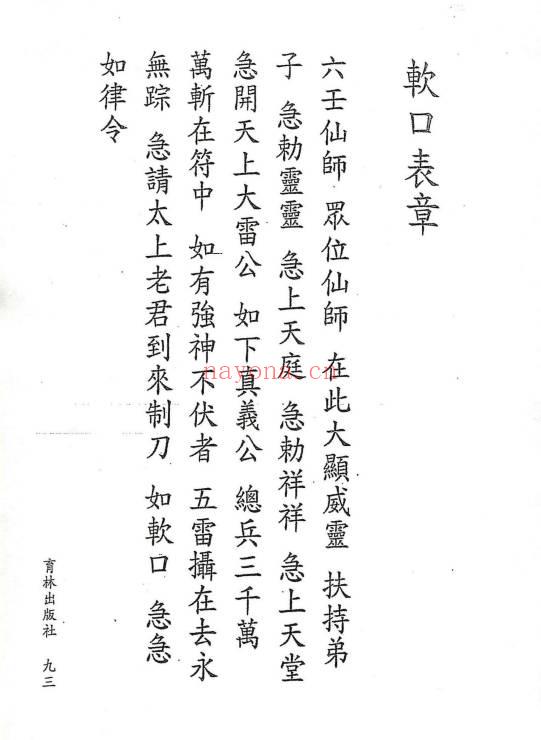 軟口表章
六壬仙師 眾位仙師 在此大顯威靈 扶持弟
子 急勅靈靈 急上天庭 急勅祥祥 急上天堂
急開天上大雷公 如下真義公 總兵三千萬
萬斬在符中 如有強神不伏者 五雷攝在去永
無踪 急請太上老君到來制刀 如軟口 急急
如律令
育林出版社 九三
nayona.cn